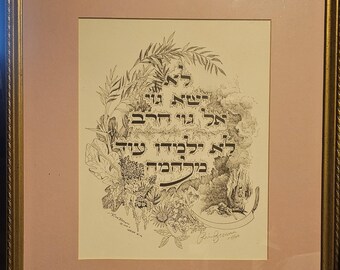 לא
ישא גוי
אל גוי חרב
לא ילמדו עוד
מלחמה